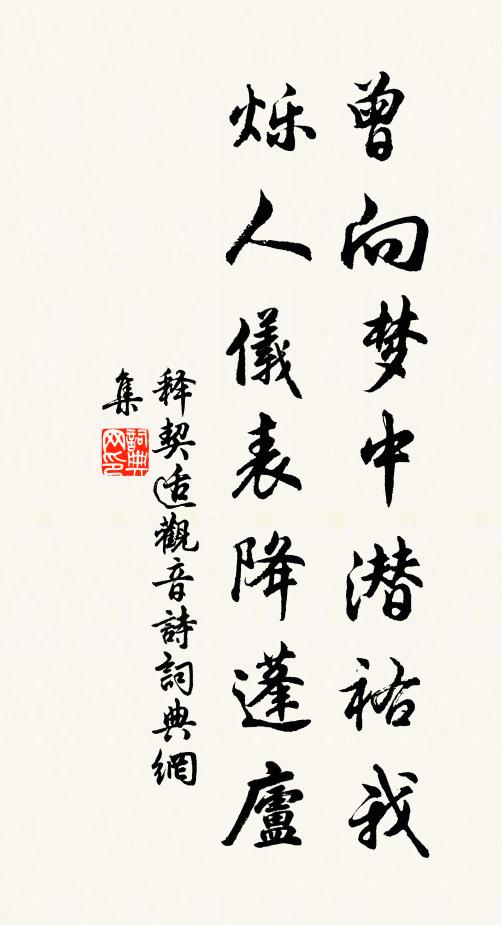 曾向梦中潜祐我
烁人儀表降蓬廬
释契适觀音詩詞典網
集
詞典
网印